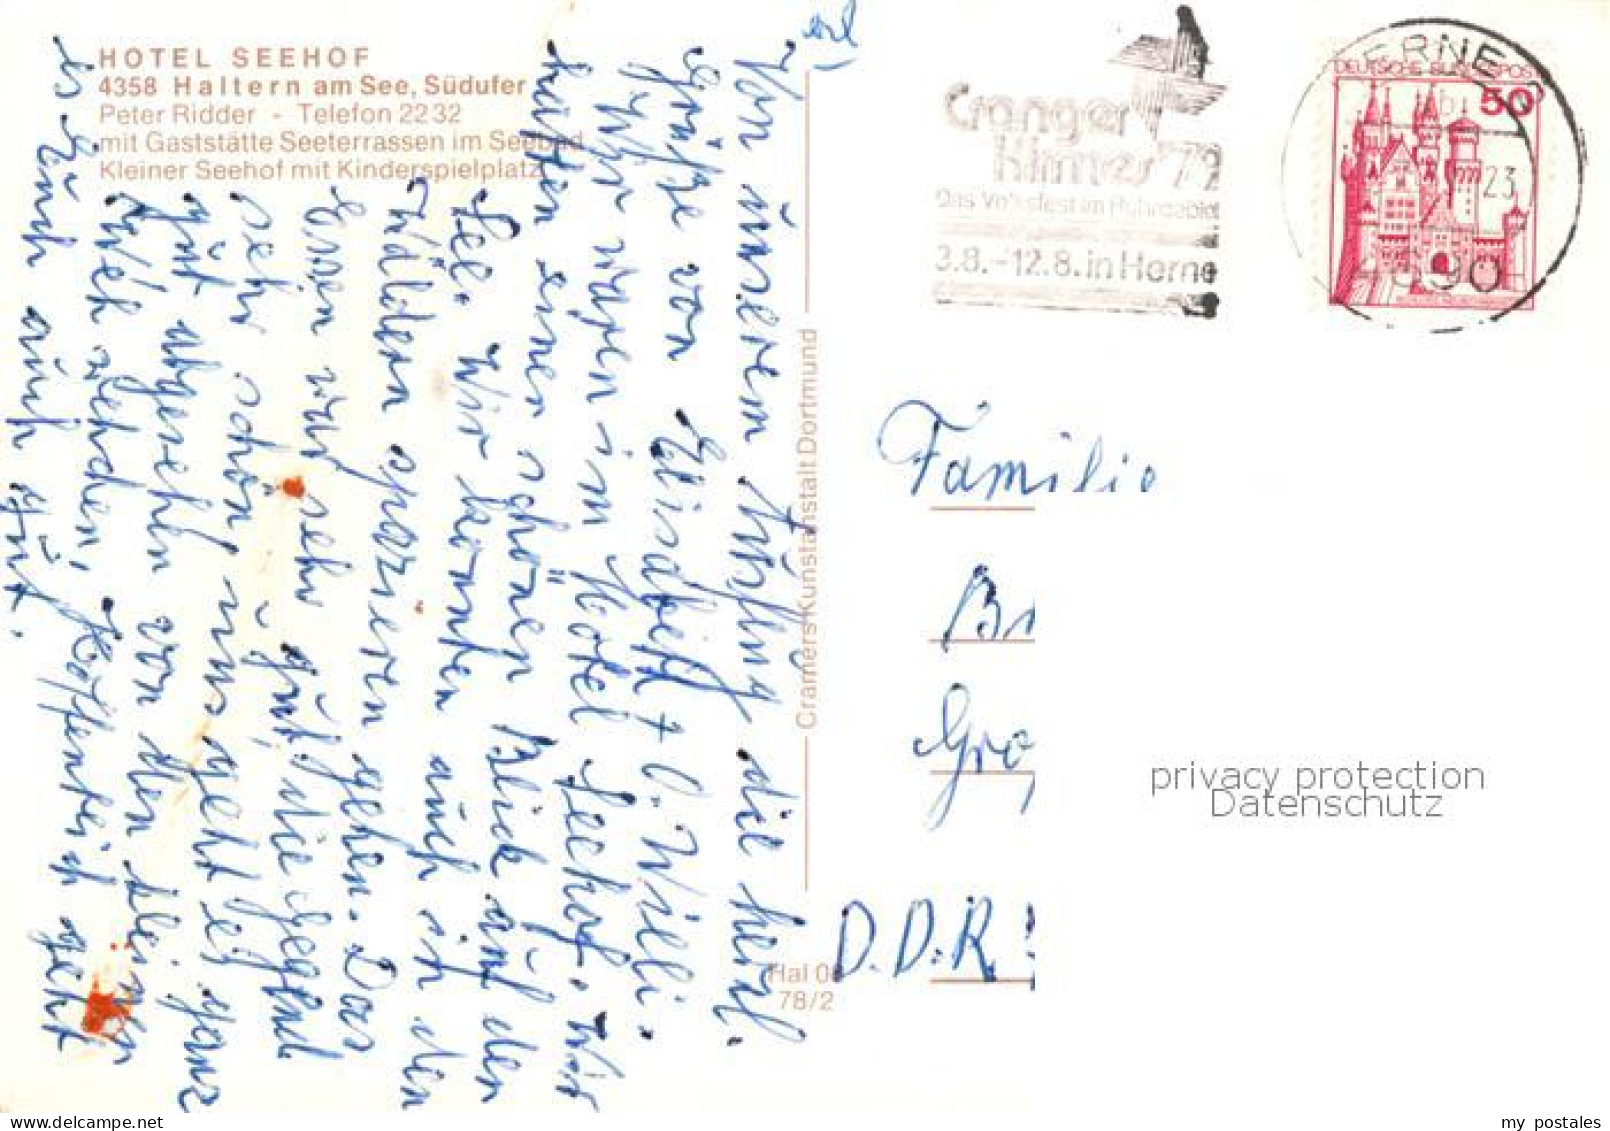 HOTEL SEEHOF
4358 Haltern am See, Südufer
Peter Ridder - Telefon 22 32
mit Gaststätte Seeterrassen im Seebad
Kleiner Seehof mit Kinderspielplatz
Von unserem Ausflug die herzl.
Grüße von Elisabeth + O. Willi.
Wir waren im Hotel Seehof. Wir
hatten einen schönen Blick auf den
See. Wir konnten auch in den
Wäldern spazieren gehen. Das
Essen war sehr gut, die Gegend
sehr schön, uns geht es ganz
gut abgesehen von den kleinen
Weh wehchen, hoffentlich geht
es Euch auch gut.
Cramers Kunstanstalt Dortmund
Hal
78/2
Cranger
Kirmes '79
Das Volksfest im Ruhrgebiet
3.8.-12.8. in Herne
HERNE
DEUTSCHE BUNDESPOST
50
23
4690
Familie
Gro
D.D.R.
privacy protection
Datenschutz
my postales